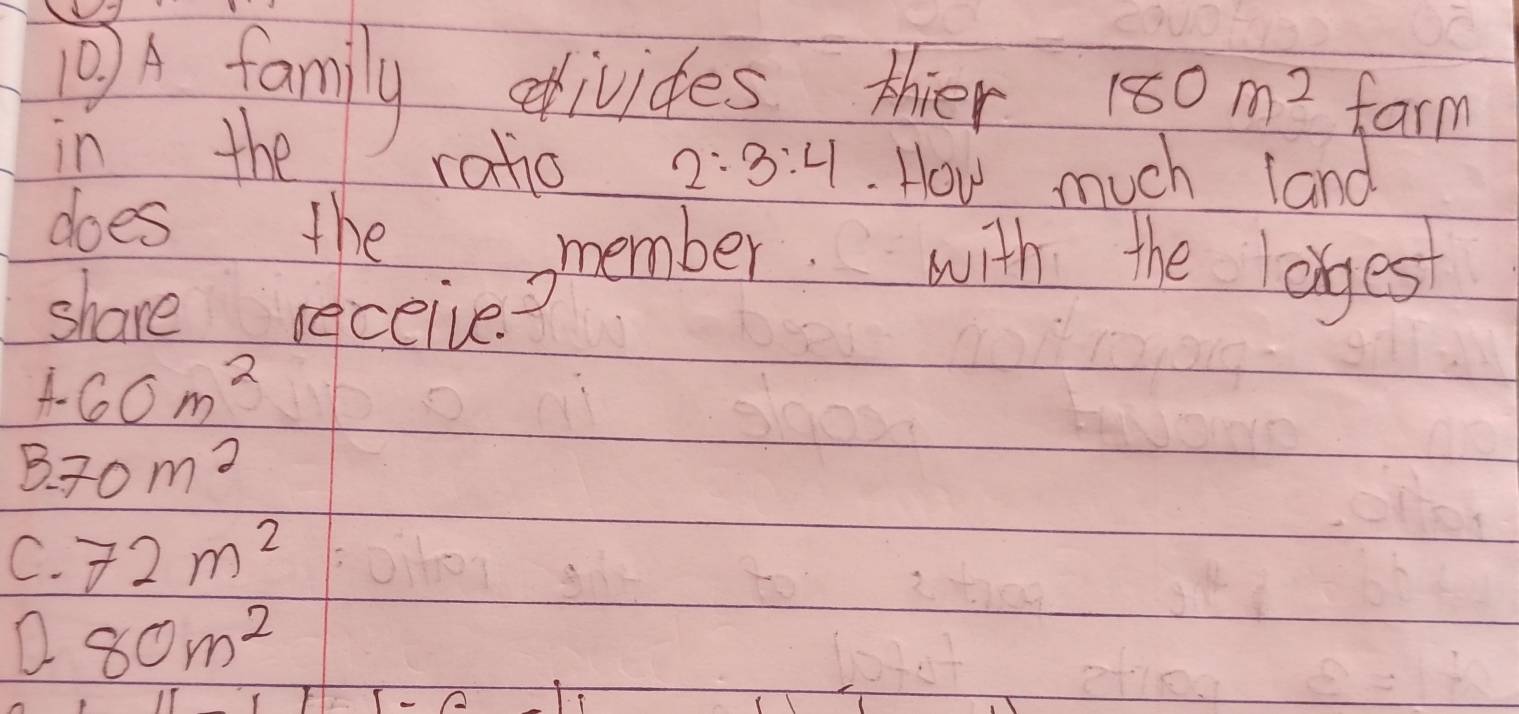 10.) A family divides thier 180 m² farm
in the ratio 2:3:4. How much land
does the member. with the largest
share receive?
A. 60 m²
B. 70 m²
C. 72 m²
D. 80 m²